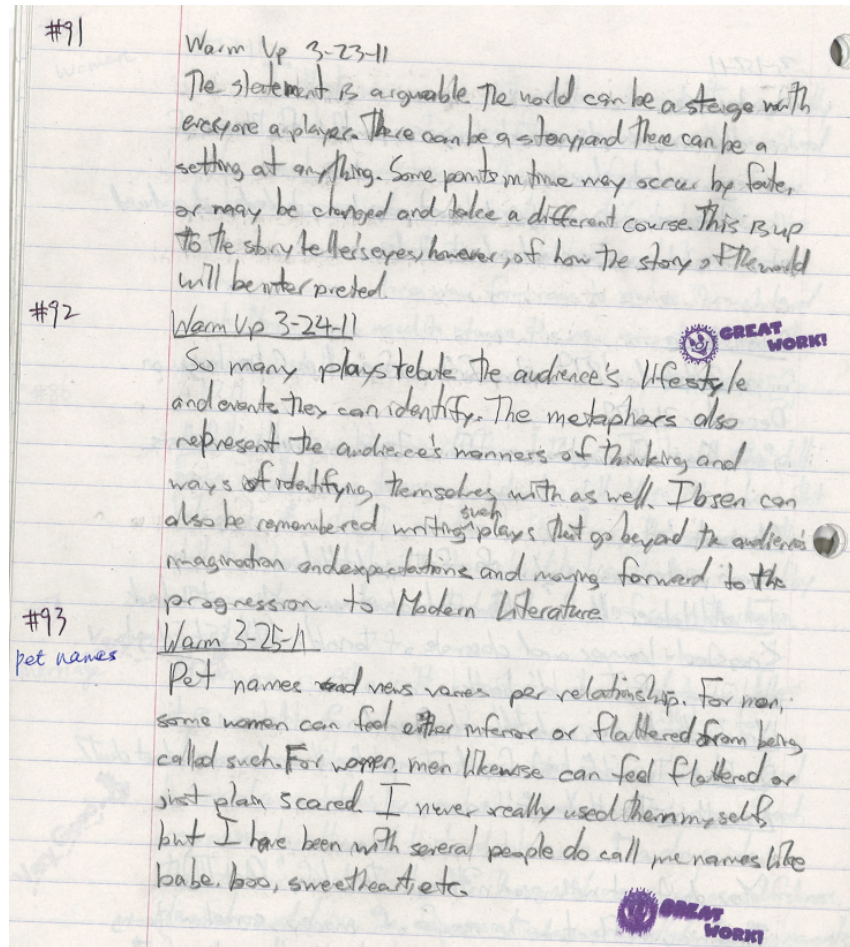 #91
Warm Up 3-23-11
The statement is arguable. The world can be a stage with
everyone a player. There can be a story, and there can be a
setting at anything. Some points in time may occur by fate,
or may be changed and take a different course. This is up
to the story teller's eyes, however, of how the story of the world
will be interpreted.
#92
Warm Up 3-24-11
GREAT
WORK!
So many plays the audience's lifestyle
and events they can identify. The metaphors also
represent the audience's manners of thinking and
ways of identifying themselves with as well. Ibsen can
also be remembered writing such plays that go beyond the audience's
imagination and expectations and moving forward to the
progression to Modern Literature
#93
pet names
Warm 3-25-11
Pet names and views varies per relationship. For men,
some women can feel either inferior or flattered from being
called such. For women, men likewise can feel flattered or
just plain scared. I never really used them myself,
but I have been with several people do call me names like
babe, boo, sweetheart, etc.
GREAT
WORK!